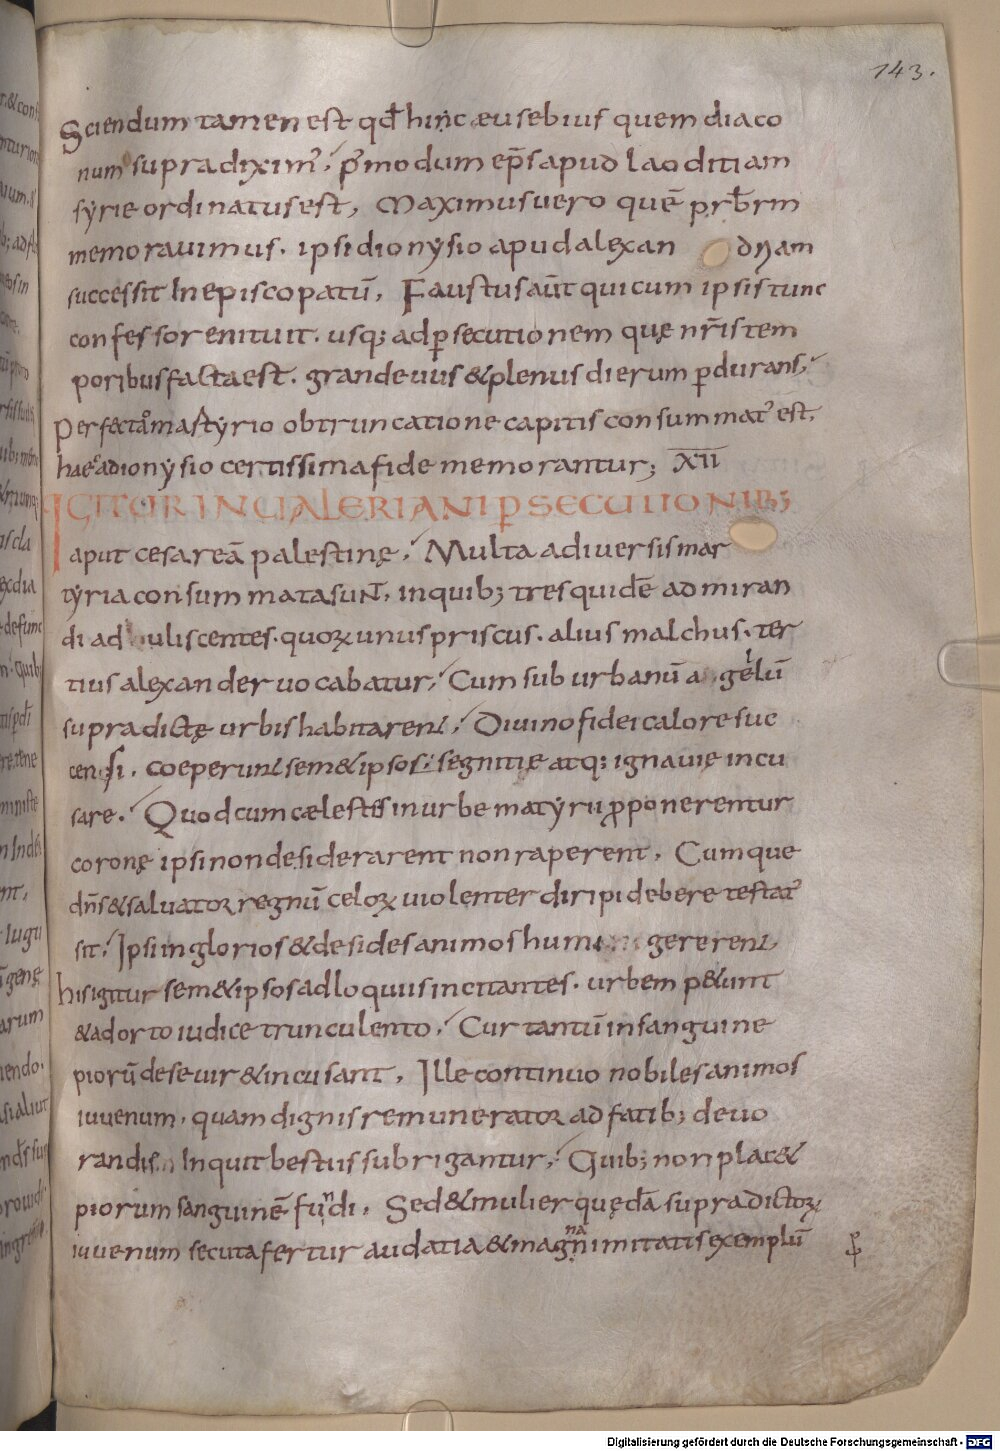 143.
Sciendum tamen est qđ hinc æusebius quem diaco
num supradiximꝰ, p̄mo dum ep̄s apud laoditiam
syrie ordinatus est, Maximus uero quē prƀrm
memorauimus. ipsi dionysio apud alexan dɲam
successit In episcopatū, Faustus aūt qui cum ipsis tunc
confessor enituit. usq; ad ꝑsecutionem quę nr̄is tem
poribus facta est. grandeuus & plenus dierum ꝑdurans,
Perfecto martyrio obtruncatione capitis consummatꝰ est.
haec a dionysio certissima fide memorantur; XII
IGITUR IN UALERIANI ꝑSECUTIONIB;
aput cesareā palestinę, Multa adiuersis mar
tyria consummata sunt, in quib; tres quidē admiran
di ad uliscentes. quoꝝ unus priscus. alius malchus. ter
tius alexander uocabatur, Cum sub urbanū agellū
supradictę urbis habitarent, Diuino fidei calore suc
censi, coeperunt sem&ipsos segnitię atq; ignauię incu
sare. Quod cum cælestes in urbe matyrii ꝓponerentur
coronę ipsi non desiderarent non raperent, Cumque
dn̄s & saluator regnū celoꝝ uiolenter diripi debere testatꝰ
sit, Ipsi inglorios & desides animos hum gererent,
his igitur sem&ipsos adloquiis incitantes. urbem p&unt
& adorto iudice trunculento, Cur tantū in sanguine
piorū deseuir& incusant, Ille continuo nobiles animos
iuuenum, quam dignis remunerator ad fatib; deuo
randis Inquit bestiis subrigantur, Quib; non plac&
piorum sanguinē fundi, Sed & mulier quędā supradictoꝝ
iuuenum secuta fertur audatia & magnanimitatis exemplū